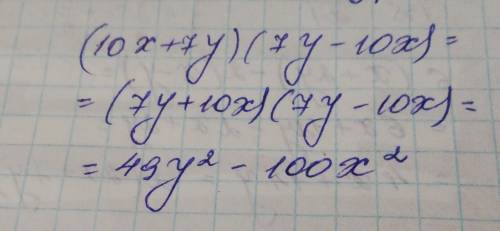 (10x+7y)(7y-10x)=
=(7y+10x)(7y-10x)=
=49y²-100x²